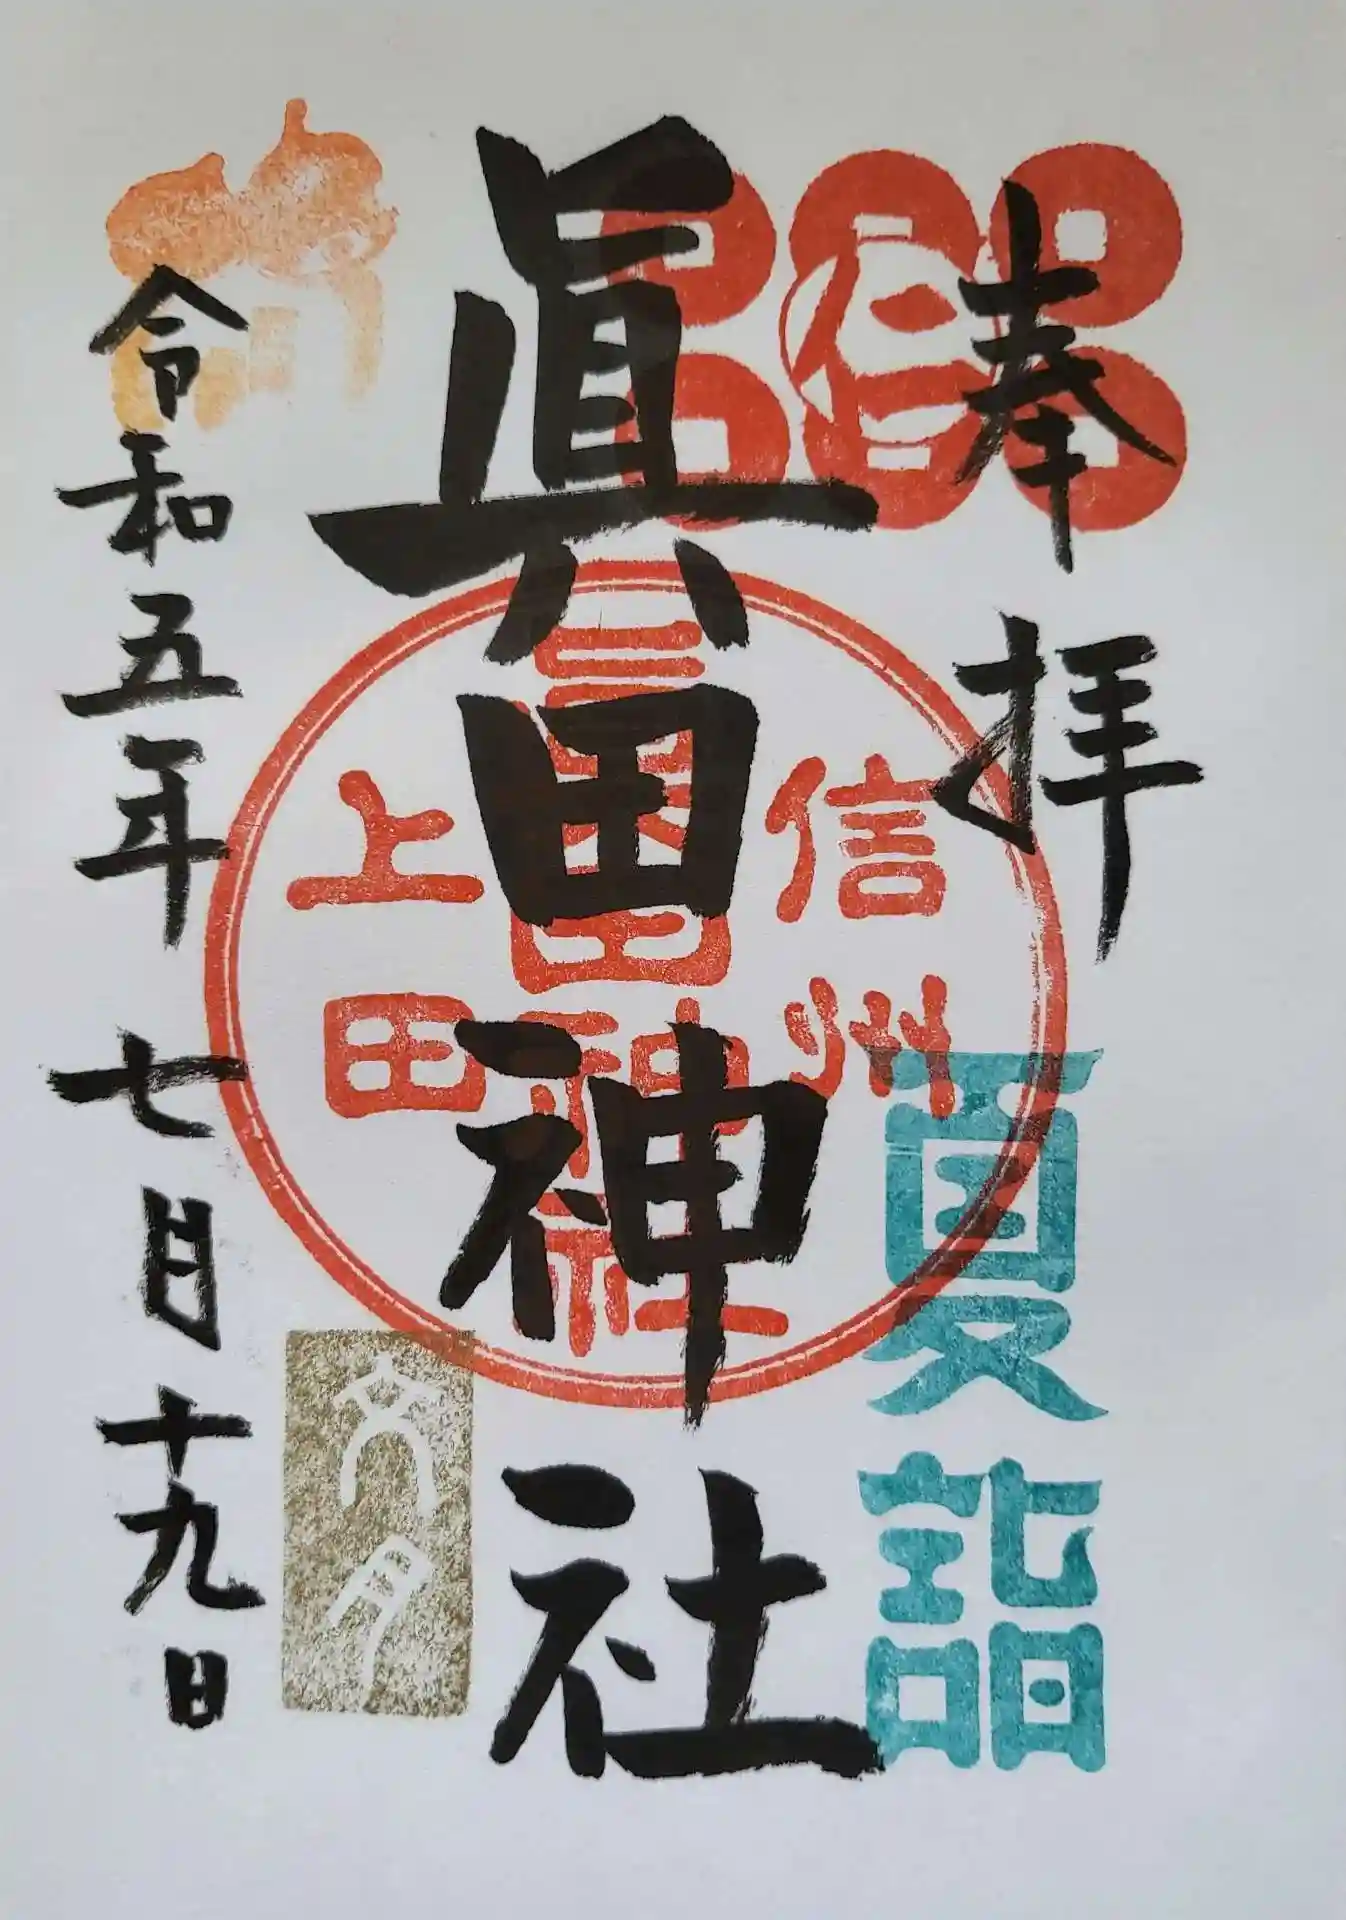 奉拝
夏詣
眞田神社
信州
眞田神社
上田
文月
令和五年七月十九日